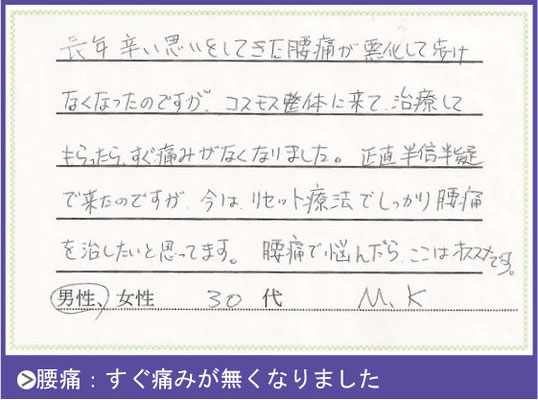 長年辛い思いをしてきた腰痛が悪化して歩け
なくなったのですが、コスモス整体に来て、治療して
もらったら、すぐ痛みがなくなりました。正直半信半疑
で来たのですが、今は、リセット療法でしっかり腰痛
を治したいと思ってます。腰痛で悩んだら、ここはオススメです。
男性、女性 30 代 M.K
腰痛：すぐ痛みが無くなりました